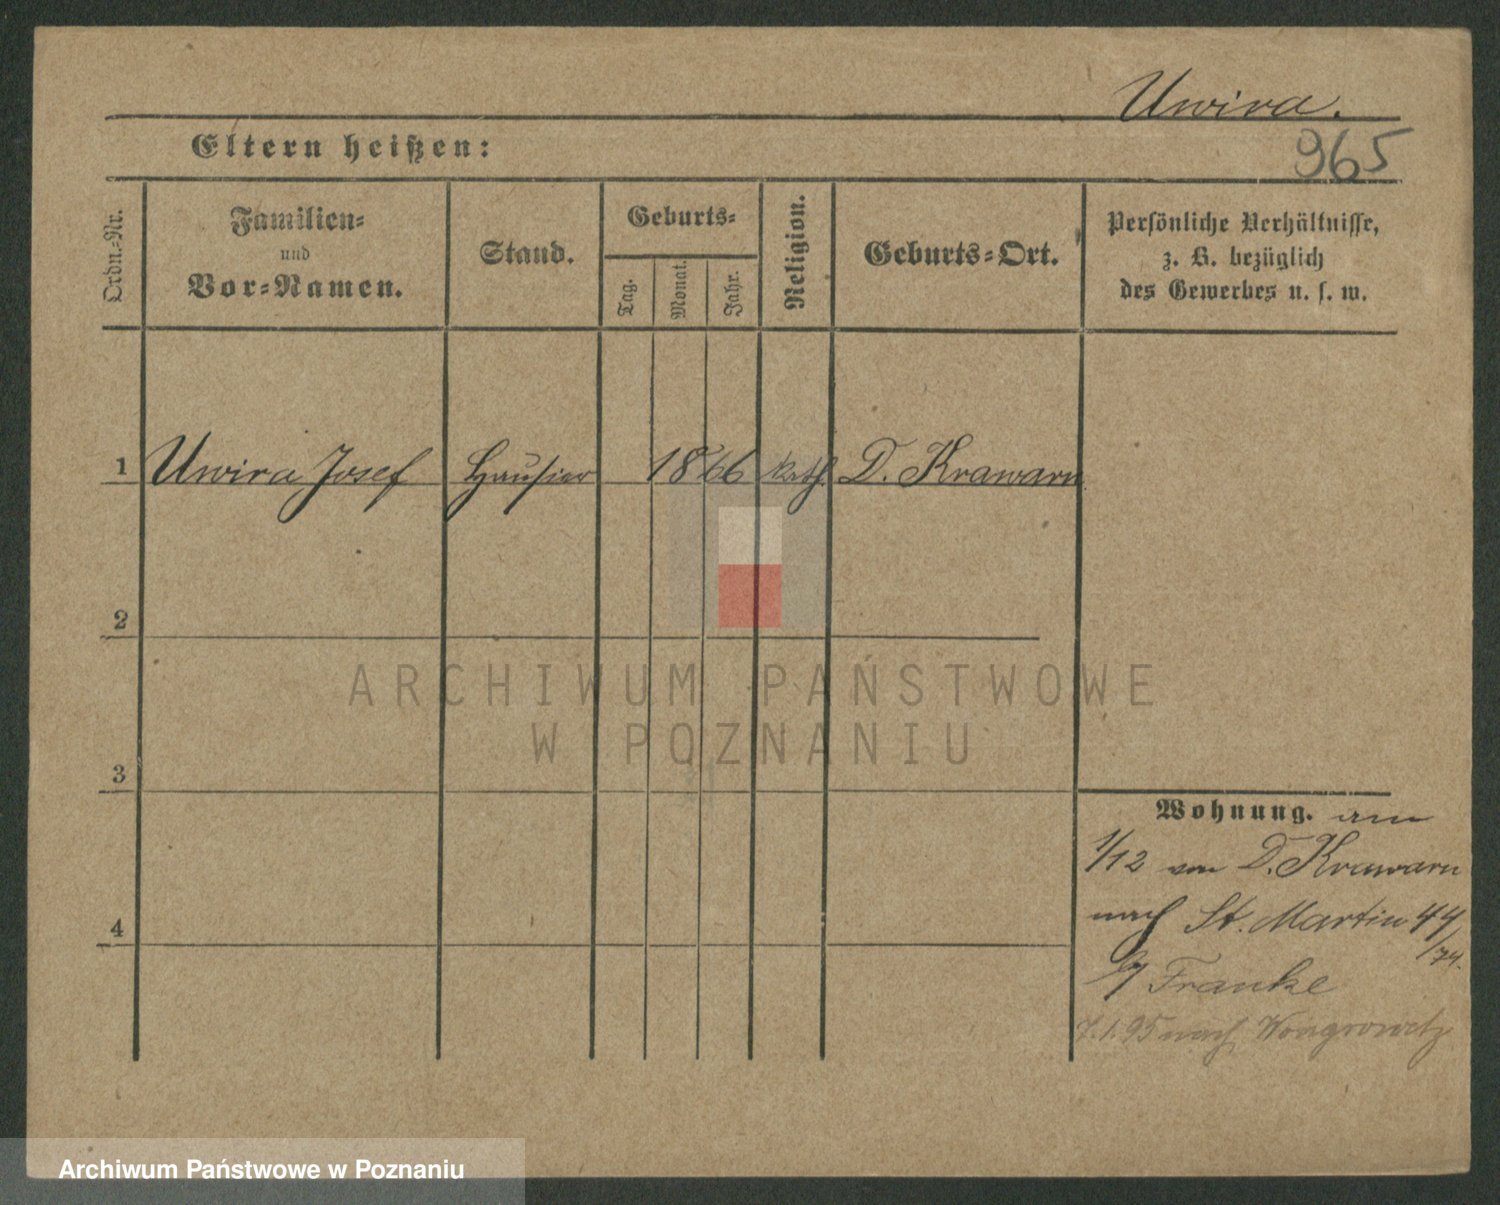 Uwira.
965
Eltern heißen:
Ordn.-Nr.
Familien-
und
Vor-Namen.
Stand.
Geburts-
Tag.
Monat.
Jahr.
Religion.
Geburts-Ort.
Persönliche Verhältnisse,
z. B. bezüglich
des Gewerbes u. s. w.
1 Uwira Josef Hausier 1866 kath. D. Krawarn
2
ARCHIWUM PAŃSTWOWE
W POZNANIU
3
Wohnung. am
1/12 von D. Krawarn
nach St. Martin 44
/74.
b/ Franke
4
7.1.95 nach Wongrowitz
Archiwum Państwowe w Poznaniu